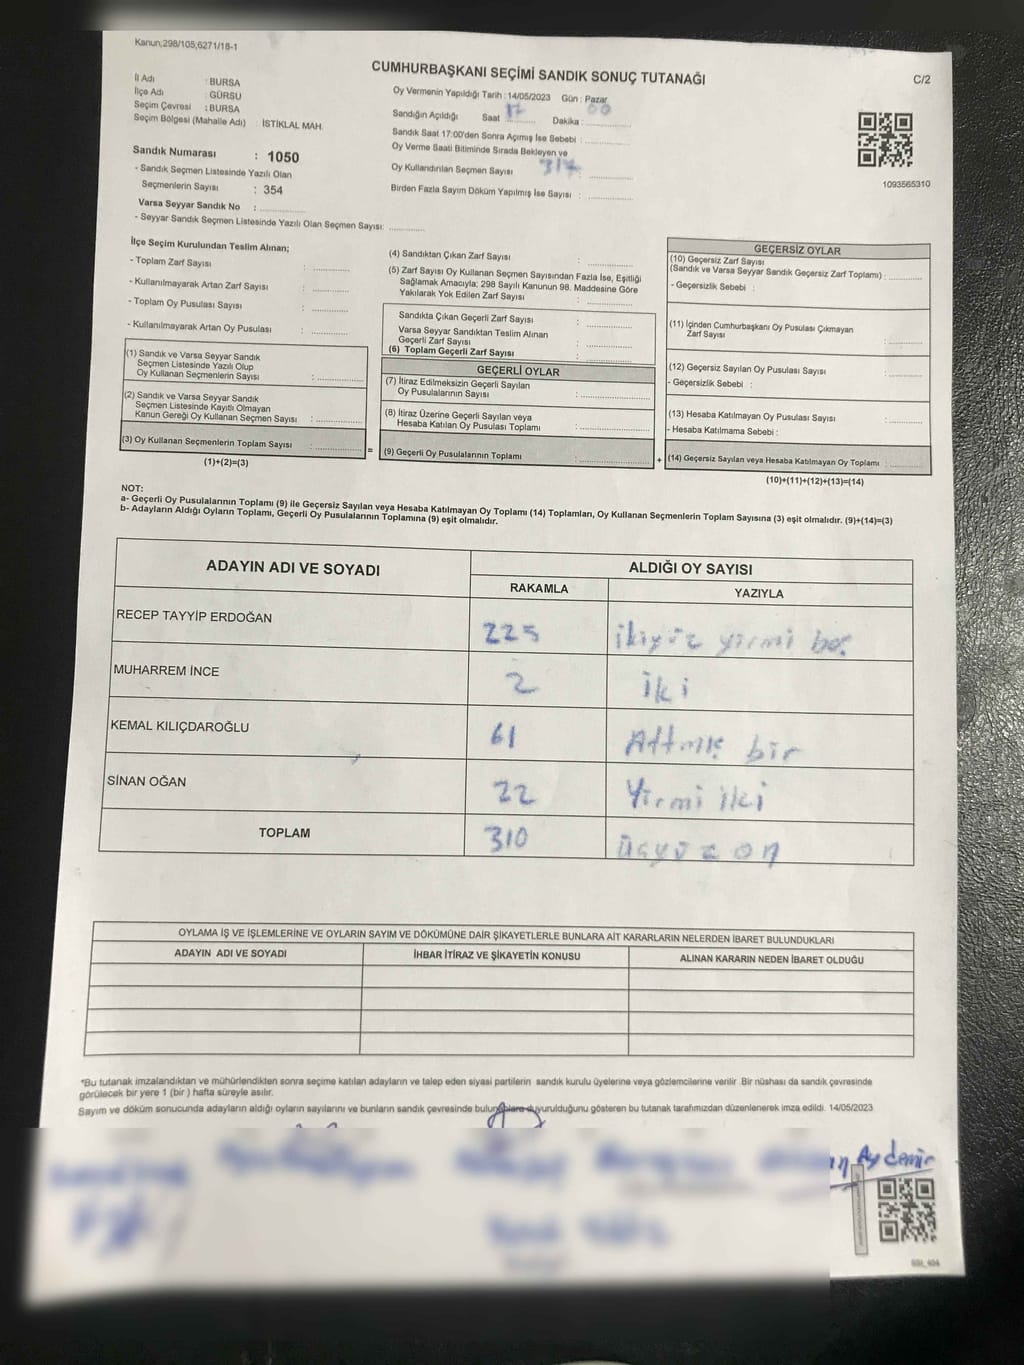 Kanun;298/105;6271/18-1
CUMHURBAŞKANI SEÇİMİ SANDIK SONUÇ TUTANAĞI
C/2
İl Adı : BURSA
İlçe Adı : GÜRSU
Seçim Çevresi : BURSA
Seçim Bölgesi (Mahalle Adı) : İSTİKLAL MAH.
Sandık Numarası : 1050
- Sandık Seçmen Listesinde Yazılı Olan
Seçmenlerin Sayısı : 354
Varsa Seyyar Sandık No :
- Seyyar Sandık Seçmen Listesinde Yazılı Olan Seçmen Sayısı:
Oy Vermenin Yapıldığı Tarih : 14/05/2023 Gün : Pazar
Sandığın Açıldığı Saat 17 Dakika : 00
Sandık Saat 17:00'den Sonra Açımış İse Sebebi :
Oy Verme Saati Bitiminde Sırada Bekleyen ve
Oy Kullandırılan Seçmen Sayısı 314 :
Birden Fazla Sayım Döküm Yapılmış İse Sayısı :
1093565310
İlçe Seçim Kurulundan Teslim Alınan;
- Toplam Zarf Sayısı :
- Kullanılmayarak Artan Zarf Sayısı :
- Toplam Oy Pusulası Sayısı :
- Kullanılmayarak Artan Oy Pusulası :
(1) Sandık ve Varsa Seyyar Sandık
Seçmen Listesinde Yazılı Olup
Oy Kullanan Seçmenlerin Sayısı :
(2) Sandık ve Varsa Seyyar Sandık
Seçmen Listesinde Kayıtlı Olmayan
Kanun Gereği Oy Kullanan Seçmen Sayısı :
(3) Oy Kullanan Seçmenlerin Toplam Sayısı :
(1)+(2)=(3)
=
(4) Sandıktan Çıkan Zarf Sayısı :
(5) Zarf Sayısı Oy Kullanan Seçmen Sayısından Fazla İse, Eşitliği
Sağlamak Amacıyla; 298 Sayılı Kanunun 98. Maddesine Göre
Yakılarak Yok Edilen Zarf Sayısı :
Sandıkta Çıkan Geçerli Zarf Sayısı :
Varsa Seyyar Sandıktan Teslim Alınan
Geçerli Zarf Sayısı :
(6) Toplam Geçerli Zarf Sayısı :
GEÇERLİ OYLAR
(7) İtiraz Edilmeksizin Geçerli Sayılan
Oy Pusulalarının Sayısı :
(8) İtiraz Üzerine Geçerli Sayılan veya
Hesaba Katılan Oy Pusulası Toplamı :
(9) Geçerli Oy Pusulalarının Toplamı :
+
GEÇERSİZ OYLAR
(10) Geçersiz Zarf Sayısı
(Sandık ve Varsa Seyyar Sandık Geçersiz Zarf Toplamı) :
- Geçersizlik Sebebi :
(11) İçinden Cumhurbaşkanı Oy Pusulası Çıkmayan
Zarf Sayısı :
(12) Geçersiz Sayılan Oy Pusulası Sayısı :
- Geçersizlik Sebebi :
(13) Hesaba Katılmayan Oy Pusulası Sayısı :
- Hesaba Katılmama Sebebi :
(14) Geçersiz Sayılan veya Hesaba Katılmayan Oy Toplamı :
(10)+(11)+(12)+(13)=(14)
NOT:
a- Geçerli Oy Pusulalarının Toplamı (9) ile Geçersiz Sayılan veya Hesaba Katılmayan Oy Toplamı (14) Toplamları, Oy Kullanan Seçmenlerin Toplam Sayısına (3) eşit olmalıdır. (9)+(14)=(3)
b- Adayların Aldığı Oyların Toplamı, Geçerli Oy Pusulalarının Toplamına (9) eşit olmalıdır.
ADAYIN ADI VE SOYADI ALDIĞI OY SAYISI
RAKAMLA YAZIYLA
RECEP TAYYİP ERDOĞAN 225 ikiyüz yirmi beş
MUHARREM İNCE 2 iki
KEMAL KILIÇDAROĞLU 61 Altmış bir
SİNAN OĞAN 22 Yirmi iki
TOPLAM 310 üçyüz on
OYLAMA İŞ VE İŞLEMLERİNE VE OYLARIN SAYIM VE DÖKÜMÜNE DAİR ŞİKAYETLERLE BUNLARA AİT KARARLARIN NELERDEN İBARET BULUNDUKLARI
ADAYIN ADI VE SOYADI İHBAR İTİRAZ VE ŞİKAYETİN KONUSU ALINAN KARARIN NEDEN İBARET OLDUĞU
*Bu tutanak imzalandıktan ve mühürlendikten sonra seçime katılan adayların ve talep eden siyasi partilerin sandık kurulu üyelerine veya gözlemcilerine verilir .Bir nüshası da sandık çevresinde
görülecek bir yere 1 (bir ) hafta süreyle asılır.
Sayım ve döküm sonucunda adayların aldığı oyların sayılarını ve bunların sandık çevresinde bulunanlara duyurulduğunu gösteren bu tutanak tarafımızdan düzenlenerek imza edildi. 14/05/2023
Aydemir